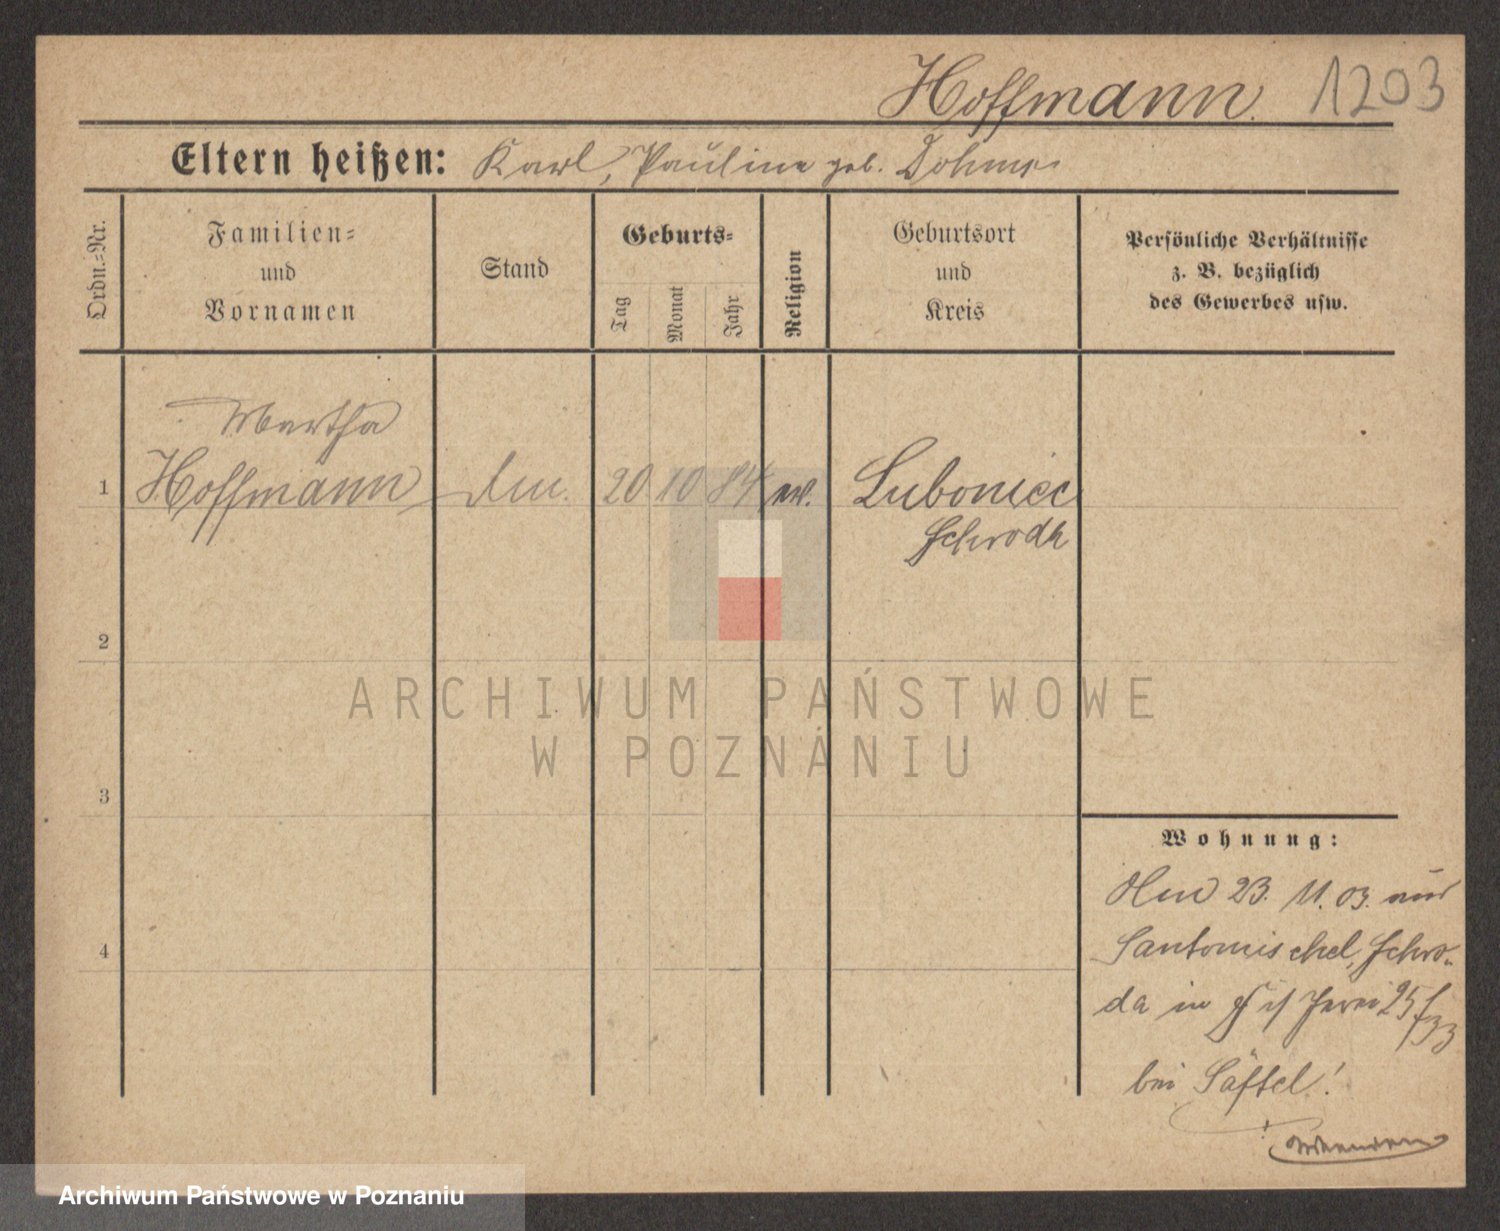 Hoffmann. 1203
Eltern heißen: Karl, Pauline geb.
Ordn.=Nr.
Familien=
und
Vornamen
Stand
Geburts=
Tag
Monat
Jahr
Religion
Geburtsort
und
Kreis
Persönliche Verhältnisse
z. B. bezüglich
des Gewerbes usw.
Martha
1 Hoffmann 20 10 84 ev. Luboniec
Schroda
2
3
4
Wohnung:
23. 11. 03. aus
Santomischel, Schro-
da in
bei
ARCHIWUM PAŃSTWOWE
W POZNANIU
Archiwum Państwowe w Poznaniu